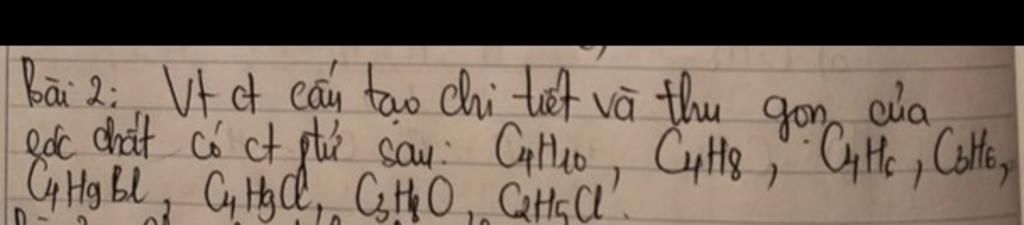 Bài 2: Vt ct cấu tạo chi tiết và thu gọn của
các chất có ct ptử sau: C4H10, C4H8, C4H6, C3H6,
C4H9Br, C4H9Cl, C3H8O, C2H5Cl.